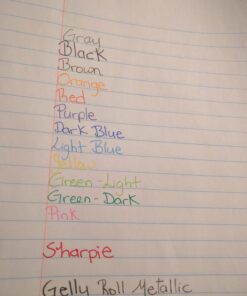 Gray
Black
Brown
Orange
Red
Purple
Dark Blue
Light Blue
Yellow
Green-Light
Green-Dark
Pink
Sharpie
Gelly Roll Metallic